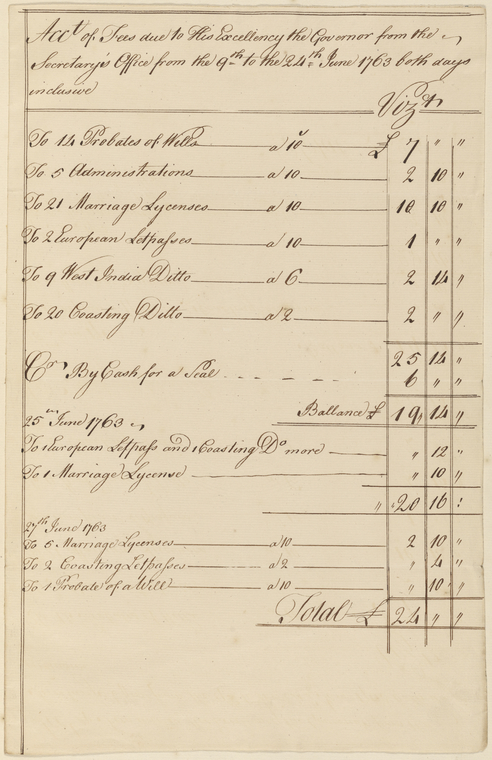 Acct of Fees due to His Excellency the Governor from the
Secretary's Office from the 9th to the 24th June 1763 both days
inclusive
Vizt
To 14 Probates of Wills a 10s £ 7 " "
To 5 Administrations a 10 2 10 "
To 21 Marriage Lycenses a 10 10 10 "
To 2 European Letpasses a 10 1 " "
To 9 West India Ditto a 6 2 14 "
To 20 Coasting Ditto a 2 2 " "
25 14 "
Cr By Cash for a Seal 6 " "
Ballance £ 19 14 "
25th June 1763
To 1 European Letpass and 1 Coasting Do more " 12 "
To 1 Marriage Lycense " 10 "
" 20 16 :
27th June 1763
To 5 Marriage Lycenses a 10 2 10 "
To 2 Coasting Letpasses a 2 " 4 "
To 1 Probate of a Will a 10 " 10 "
Total £ 24 " "